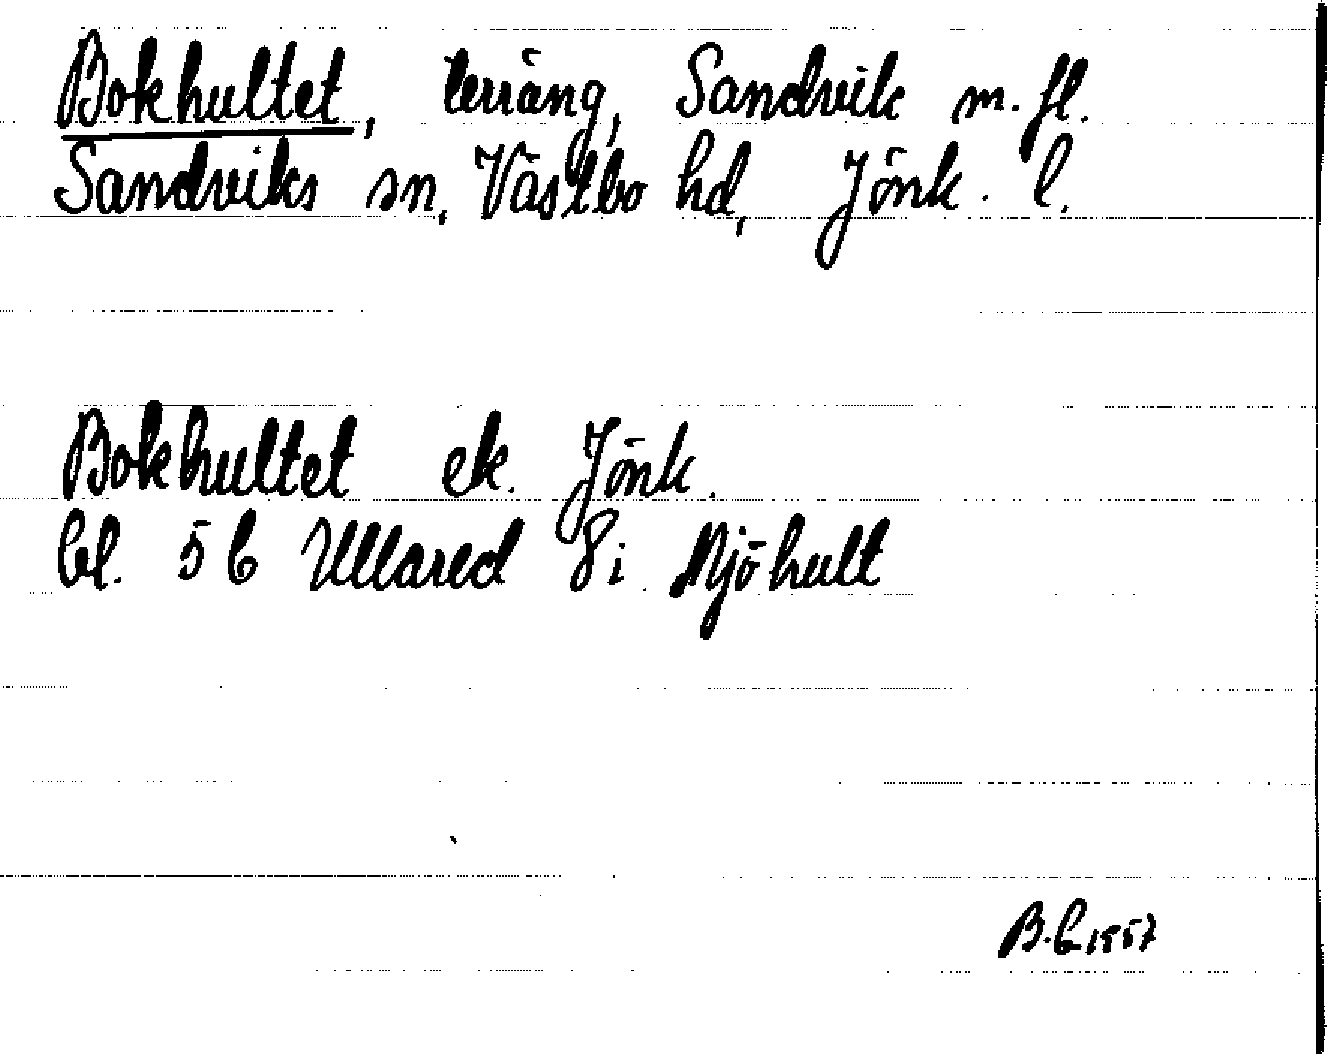 Bokhultet, terräng, Sandvik m.fl.
Sandviks sn, Västbo hd, Jönk. l.
Bokhultet ek. Jönk.
bl. 5 C Ullared 8 i Mjöhult
B.C 1957